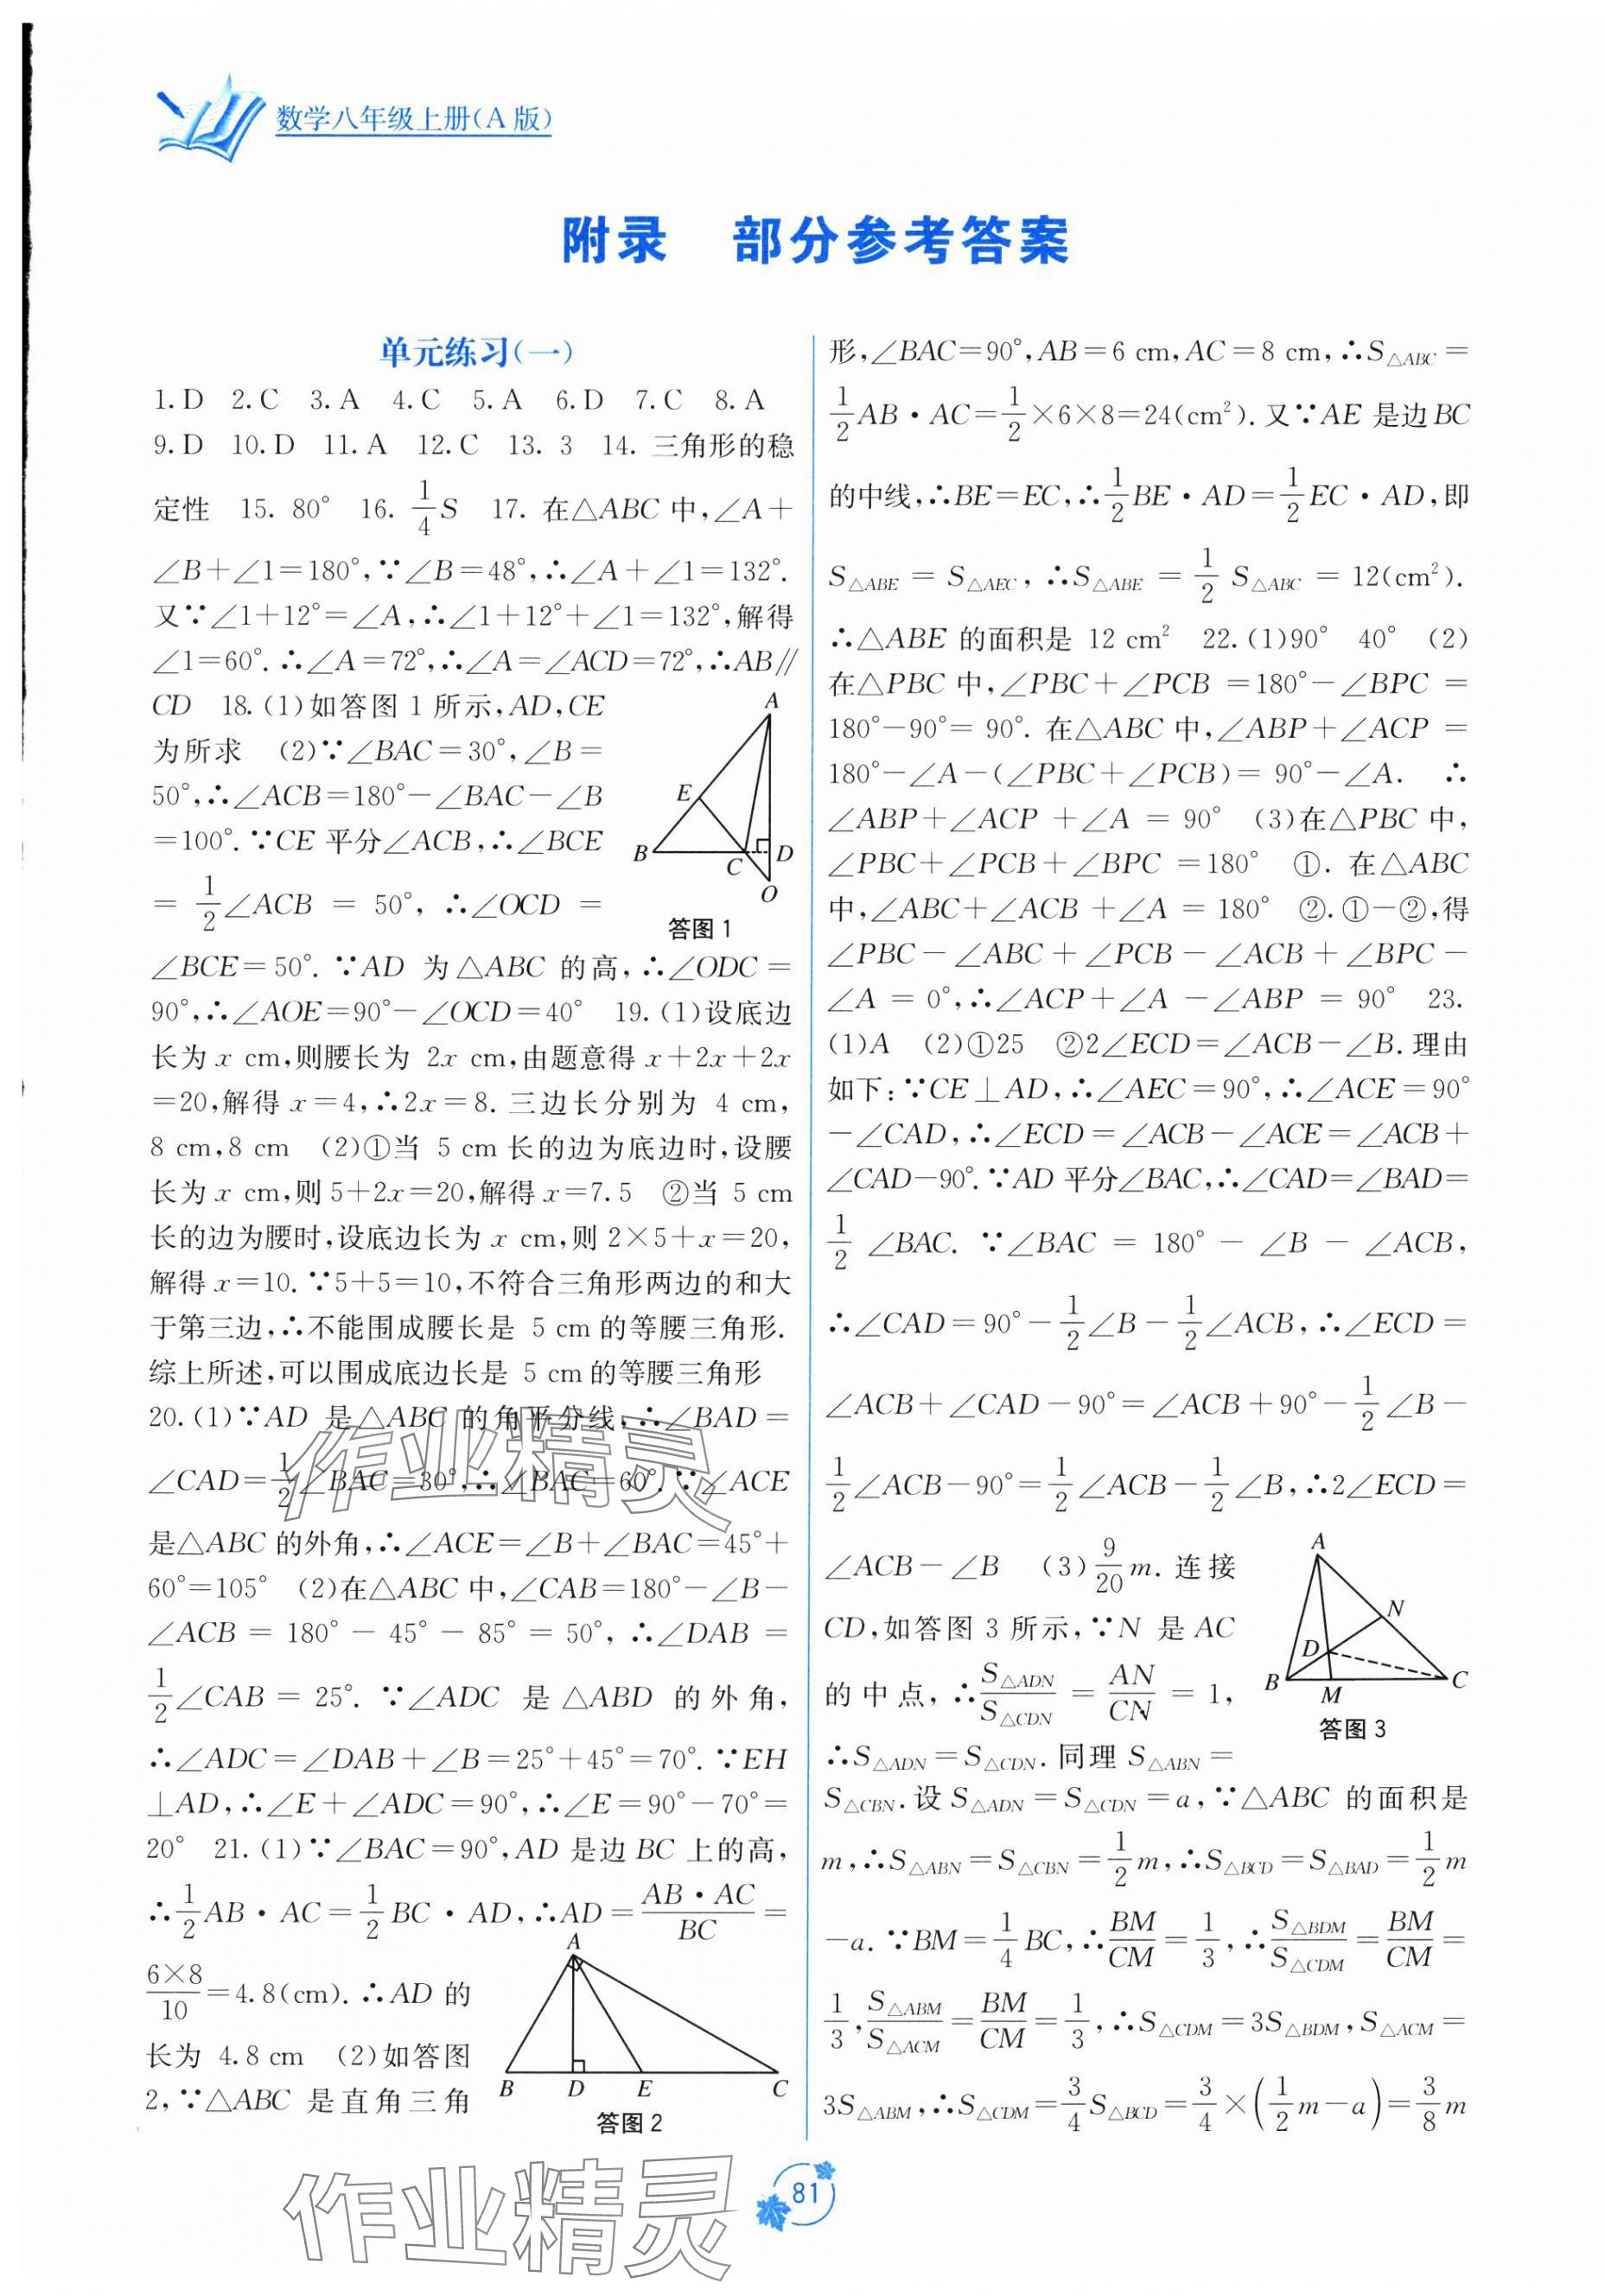 数学八年级上册(A版)
附录 部分参考答案
单元练习(一)
1.D 2.C 3.A 4.C 5.A 6.D 7.C 8.A
9.D 10.D 11.A 12.C 13. 3 14. 三角形的稳
定性 15. 80° 16. 1/4 S 17. 在△ABC中,∠A+
∠B+∠1=180°,∵∠B=48°,∴∠A+∠1=132°.
又∵∠1+12°=∠A,∴∠1+12°+∠1=132°,解得
∠1=60°.∴∠A=72°,∴∠A=∠ACD=72°,∴AB∥
CD 18.(1)如答图1所示,AD,CE
为所求 (2)∵∠BAC=30°,∠B=
50°,∴∠ACB=180°-∠BAC-∠B
=100°.∵CE平分∠ACB,∴∠BCE
=1/2∠ACB=50°,∴∠OCD=
A
E
B
C
D
O
答图1
∠BCE=50°.∵AD为△ABC的高,∴∠ODC=
90°,∴∠AOE=90°-∠OCD=40° 19.(1)设底边
长为x cm,则腰长为 2x cm,由题意得x+2x+2x
=20,解得x=4,∴2x=8.三边长分别为 4 cm,
8 cm,8 cm (2)①当 5 cm长的边为底边时,设腰
长为x cm,则5+2x=20,解得x=7.5 ②当 5 cm
长的边为腰时,设底边长为x cm,则2×5+x=20,
解得x=10.∵5+5=10,不符合三角形两边的和大
于第三边,∴不能围成腰长是 5 cm的等腰三角形.
综上所述,可以围成底边长是 5 cm的等腰三角形
20.(1)∵AD是△ABC的角平分线,∴∠BAD=
∠CAD=1/2∠BAC=30°,∴∠BAC=60°.∵∠ACE
是△ABC的外角,∴∠ACE=∠B+∠BAC=45°+
60°=105° (2)在△ABC中,∠CAB=180°-∠B-
∠ACB=180°-45°-85°=50°,∴∠DAB=
1/2∠CAB=25°.∵∠ADC是△ABD的外角,
∴∠ADC=∠DAB+∠B=25°+45°=70°.∵EH
⊥AD,∴∠E+∠ADC=90°,∴∠E=90°-70°=
20° 21.(1)∵∠BAC=90°,AD是边BC上的高,
∴1/2 AB·AC=1/2 BC·AD,∴AD=AB·AC/BC=
6×8/10=4.8(cm).∴AD的
长为 4.8 cm (2)如答图
2,∵△ABC是直角三角
A
B
D
E
C
答图2
形,∠BAC=90°,AB=6 cm,AC=8 cm,∴S△ABC=
1/2 AB·AC=1/2×6×8=24(cm²).又∵AE是边BC
的中线,∴BE=EC,∴1/2 BE·AD=1/2 EC·AD,即
S△ABE=S△AEC,∴S△ABE=1/2 S△ABC=12(cm²).
∴△ABE的面积是 12 cm² 22.(1)90° 40° (2)
在△PBC中,∠PBC+∠PCB=180°-∠BPC=
180°-90°=90°.在△ABC中,∠ABP+∠ACP=
180°-∠A-(∠PBC+∠PCB)=90°-∠A. ∴
∠ABP+∠ACP+∠A=90° (3)在△PBC中,
∠PBC+∠PCB+∠BPC=180° ①.在△ABC
中,∠ABC+∠ACB+∠A=180° ②.①-②,得
∠PBC-∠ABC+∠PCB-∠ACB+∠BPC-
∠A=0°,∴∠ACP+∠A-∠ABP=90° 23.
(1)A (2)①25 ②2∠ECD=∠ACB-∠B.理由
如下:∵CE⊥AD,∴∠AEC=90°,∴∠ACE=90°
-∠CAD,∴∠ECD=∠ACB-∠ACE=∠ACB+
∠CAD-90°.∵AD平分∠BAC,∴∠CAD=∠BAD=
1/2∠BAC.∵∠BAC=180°-∠B-∠ACB,
∴∠CAD=90°-1/2∠B-1/2∠ACB,∴∠ECD=
∠ACB+∠CAD-90°=∠ACB+90°-1/2∠B-
1/2∠ACB-90°=1/2∠ACB-1/2∠B,∴2∠ECD=
∠ACB-∠B (3)9/20 m.连接
CD,如答图3所示,∵N是AC
的中点,∴S△ADN/S△CDN=AN/CN=1,
∴S△ADN=S△CDN.同理S△ABN=
A
N
D
B
M
C
答图3
S△CBN.设S△ADN=S△CDN=a,∵△ABC的面积是
m,∴S△ABN=S△CBN=1/2 m,∴S△BCD=S△BAD=1/2 m
-a.∵BM=1/4 BC,∴BM/CM=1/3,∴S△BDM/S△CDM=BM/CM=
1/3,S△ABM/S△ACM=BM/CM=1/3,∴S△CDM=3S△BDM,S△ACM=
3S△ABM,∴S△CDM=3/4 S△BCD=3/4×(1/2 m-a)=3/8 m
作业精灵
作业精灵
81